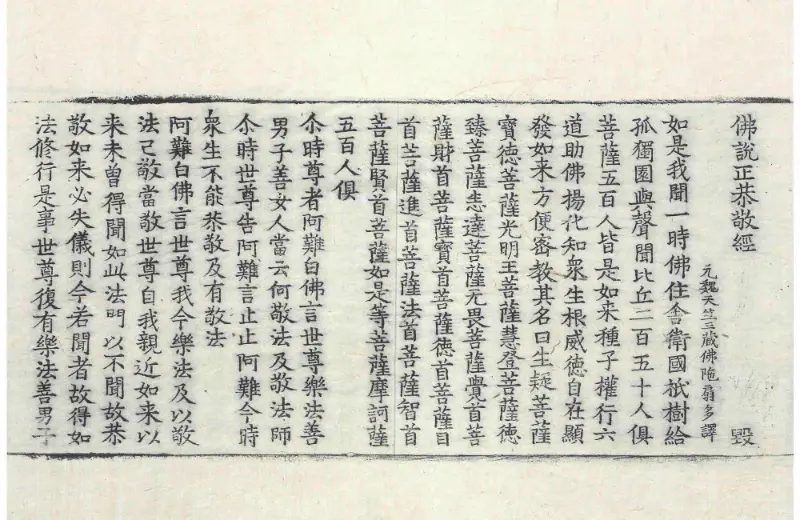 佛說正恭敬經 毀
元魏天竺三藏佛陁扇多譯
如是我聞一時佛住舍衛國祇樹給
孤獨園與聲聞比丘二百五十人俱
菩薩五百人皆是如来種子權行六
道助佛揚化知衆生根威德自在顯
發如来方便密教其名曰生疑菩薩
寶德菩薩光明王菩薩慧登菩薩德
臻菩薩悉達菩薩无畏菩薩貴首菩
薩財首菩薩寶首菩薩德首菩薩目
首菩薩進首菩薩法首菩薩智首
菩薩賢首菩薩如是等菩薩摩訶薩
五百人俱
尒時尊者阿難白佛言世尊樂法善
男子善女人當云何敬法及敬法師
尒時世尊告阿難言止止阿難今時
衆生不能恭敬及有敬法
阿難白佛言世尊我今樂法及以敬
法己敬當敬世尊自我親近如来以
来未曾得聞如此法門以不聞故恭
敬如来必失儀則今若聞者故得如
法修行是事世尊復有樂法善男子